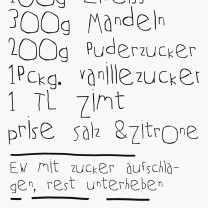 300g Mandeln
200g Puderzucker
1Pckg. vanillezucker
1 TL Zimt
prise salz & Zitrone
EW mit zucker aufschla-
gen, rest unterheben